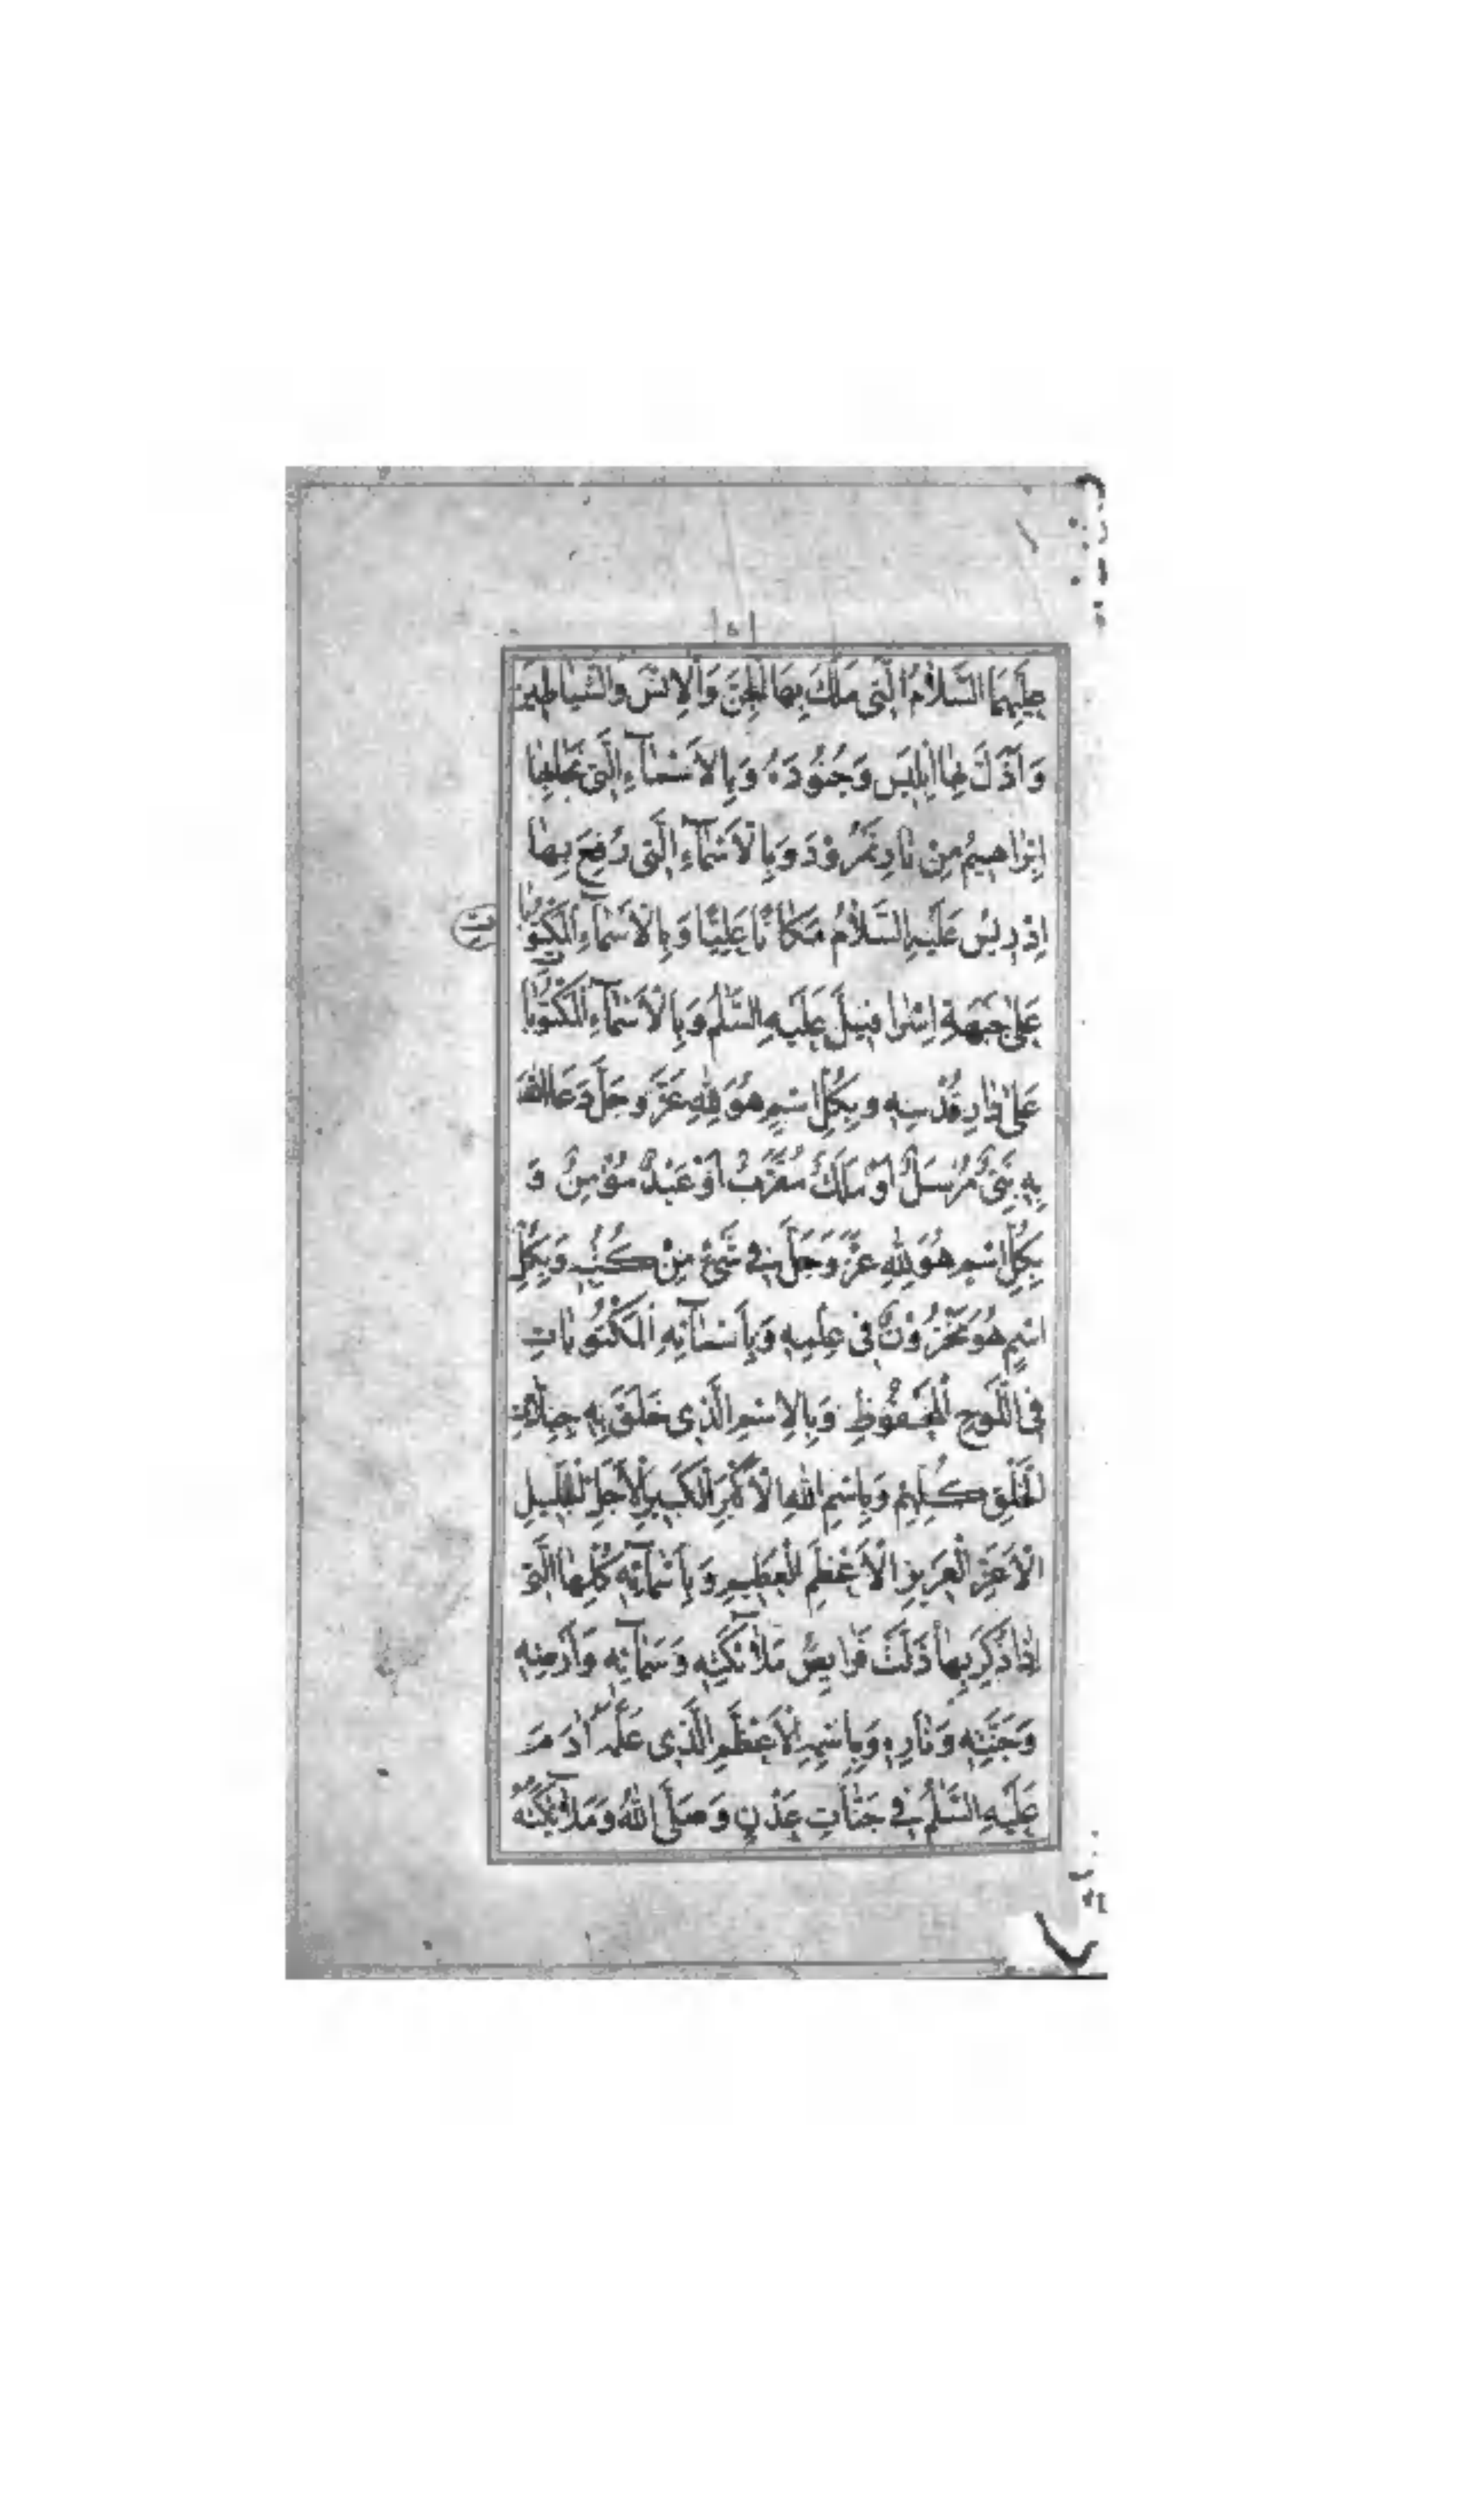 عَلَيْهِمَا السَّلَامُ الَّتِي مَلَكَ بِهَا الْجِنَّ وَالْاِنْسَ وَالشَّيَاطِينَ
وَاَذَلَّ بِهَا اِبْلِيسَ وَجُنُودَهُ وَبِالْاَسْمَآءِ الَّتِي نَجَا بِهَا
اِبْرَاهِيمُ مِنْ نَارِ نَمْرُودَ وَبِالْاَسْمَآءِ الَّتِي رُفِعَ بِهَا
اِدْرِيسُ عَلَيْهِ السَّلَامُ مَكَانًا عَلِيًّا وَبِالْاَسْمَآءِ الْمَكْتُوبَاتِ
عَلَى جَبْهَةِ اِسْرَافِيلَ عَلَيْهِ السَّلٰمُ وَبِالْاَسْمَآءِ الْمَكْتُوبَاتِ
عَلَى دَارِ قُدْسِهِ وَبِكُلِّ اسْمٍ هُوَ لِلّٰهِ عَزَّ وَجَلَّ دَعَا اللّٰهَ
بِهِ نَبِيٌّ مُرْسَلٌ اَوْ مَلَكٌ مُقَرَّبٌ اَوْ عَبْدٌ مُؤْمِنٌ وَ
بِكُلِّ اسْمٍ هُوَ لِلّٰهِ عَزَّ وَجَلَّ فِي شَيْءٍ مِنْ كُتُبِهِ وَبِكُلِّ
اسْمٍ هُوَ مَخْزُونٌ فِي عِلْمِهِ وَبِاَسْمَآئِهِ الْمَكْتُوبَاتِ
فِي اللَّوْحِ الْمَحْفُوظِ وَبِالْاِسْمِ الَّذِي خَلَقَ بِهِ جِبِلَّاتِ
الْخَلْقِ كُلِّهِمْ وَبِاسْمِ اللّٰهِ الْاَكْبَرِ الْكَبِيرِ الْاَجَلِّ الْجَلِيلِ
الْاَعَزِّ الْعَزِيزِ الْاَعْظَمِ الْعَظِيمِ وَبِاَسْمَآئِهِ كُلِّهَا الَّتِي
اِذَا ذُكِرَ بِهَا ذَلَّتْ فَرَايِصُ مَلَآئِكَتِهِ وَسَمَآئِهِ وَاَرْضِهِ
وَجَنَّتِهِ وَنَارِهِ وَبِاسْمِهِ الْاَعْظَمِ الَّذِي عَلَّمَهُ اٰدَمَ
عَلَيْهِ السَّلٰمُ فِي جَنَّاتِ عَدْنٍ وَصَلَّى اللّٰهُ وَمَلَآئِكَتُهُ